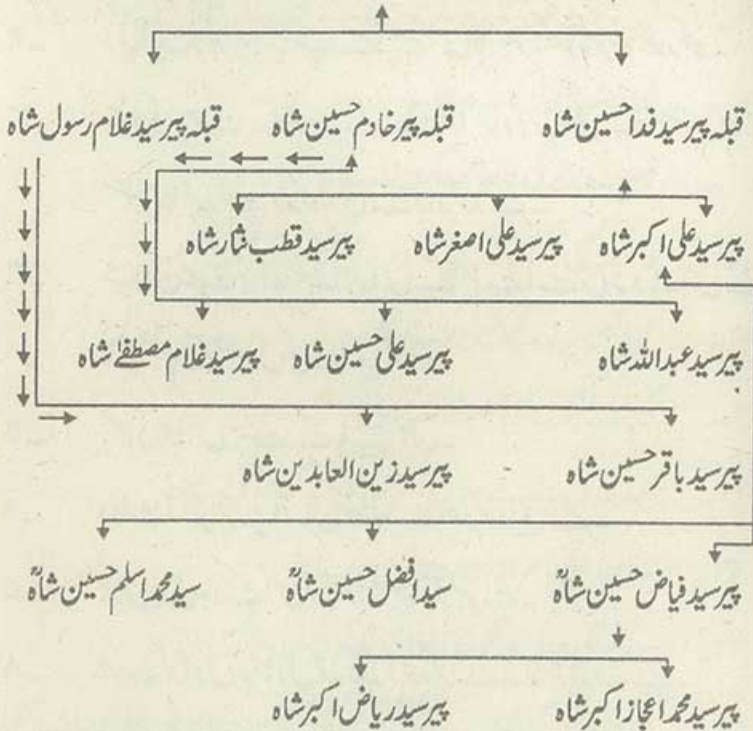 قبلہ پیر سید فدا حسین شاہ قبلہ پیر خادم حسین شاہ قبلہ پیر سید غلام رسول شاہ
پیر سید علی اکبر شاہ پیر سید علی اصغر شاہ پیر سید قطب نثار شاہ
پیر سید عبداللہ شاہ پیر سید علی حسین شاہ پیر سید غلام مصطفےٰ شاہ
پیر سید باقر حسین شاہ پیر سید زین العابدین شاہ
پیر سید فیاض حسین شاہؒ سید افضل حسین شاہؒ سید محمد اسلم حسین شاہؒ
پیر سید محمد اعجاز اکبر شاہ پیر سید ریاض اکبر شاہ